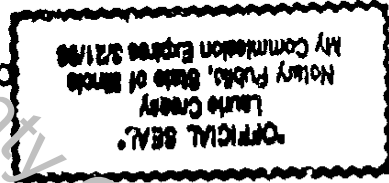 "OFFICIAL SEAL"
Laurie Creeny
Notary Public, State of Illinois
My Commission Expires 3/21/98